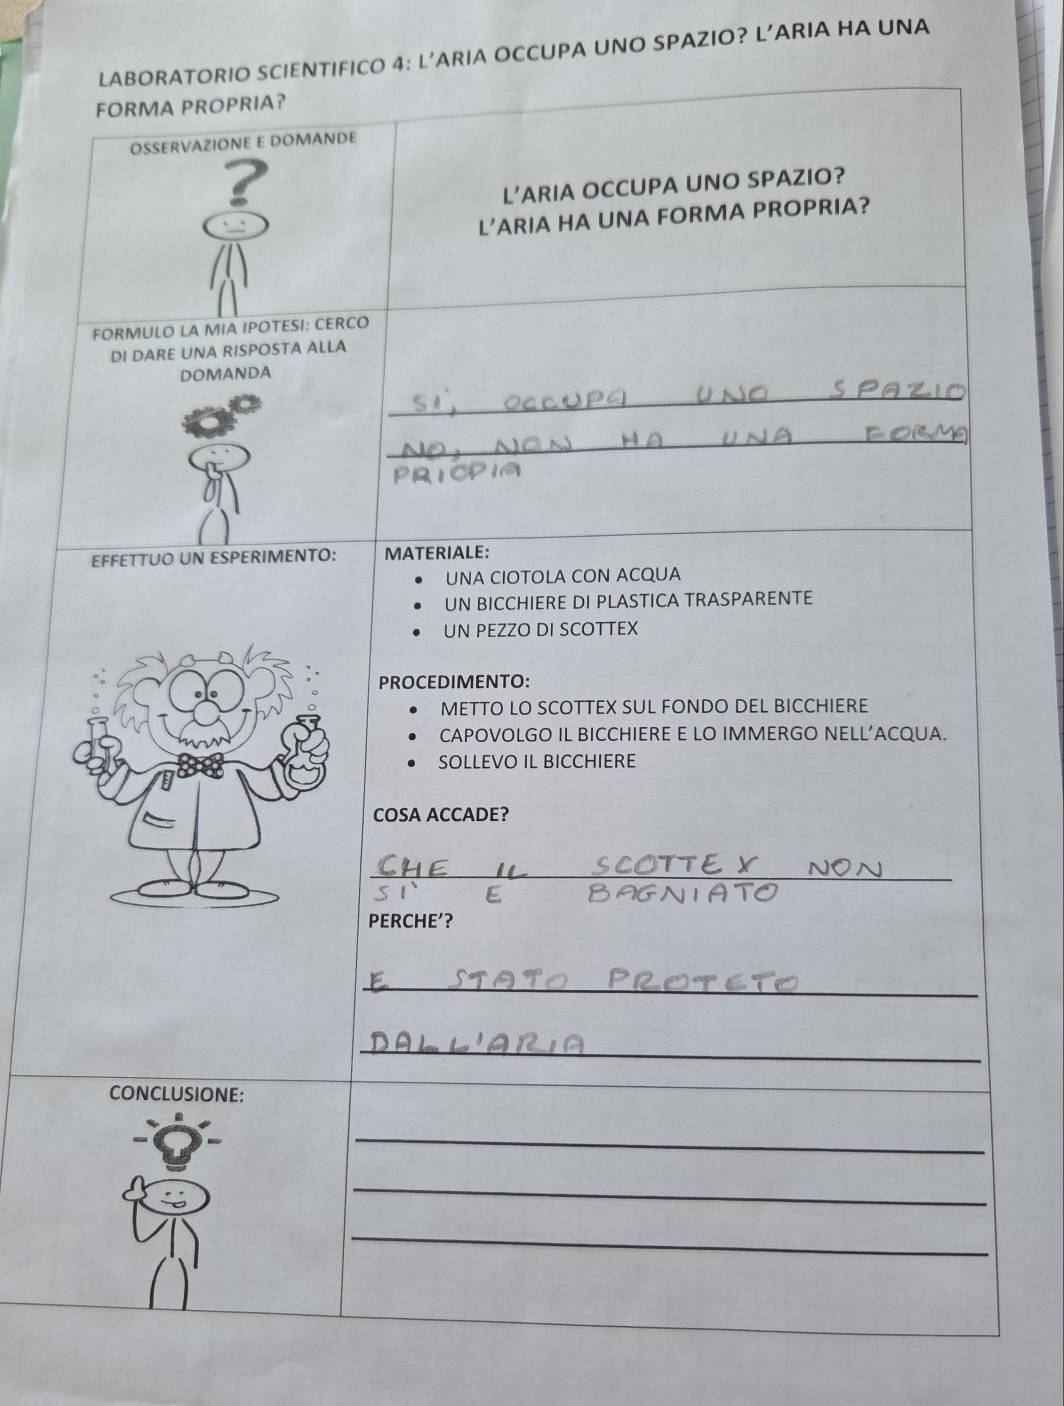 LABORATORIO SCIENTIFICO 4: L'ARIA OCCUPA UNO SPAZIO? L'ARIA HA UNA
FORMA PROPRIA?
OSSERVAZIONE E DOMANDE
?
L'ARIA OCCUPA UNO SPAZIO?
L'ARIA HA UNA FORMA PROPRIA?
FORMULO LA MIA IPOTESI: CERCO
DI DARE UNA RISPOSTA ALLA
DOMANDA
SÌ, OCCUPA UNO SPAZIO
NO, NON HA UNA FORMA
PRIOPIA
EFFETTUO UN ESPERIMENTO:
MATERIALE:
• UNA CIOTOLA CON ACQUA
• UN BICCHIERE DI PLASTICA TRASPARENTE
• UN PEZZO DI SCOTTEX
PROCEDIMENTO:
• METTO LO SCOTTEX SUL FONDO DEL BICCHIERE
• CAPOVOLGO IL BICCHIERE E LO IMMERGO NELL'ACQUA.
• SOLLEVO IL BICCHIERE
COSA ACCADE?
CHE IL SCOTTEX NON
SÌ E BAGNIATO
PERCHE'?
E STATO PROTETO
DALL'ARIA
CONCLUSIONE: